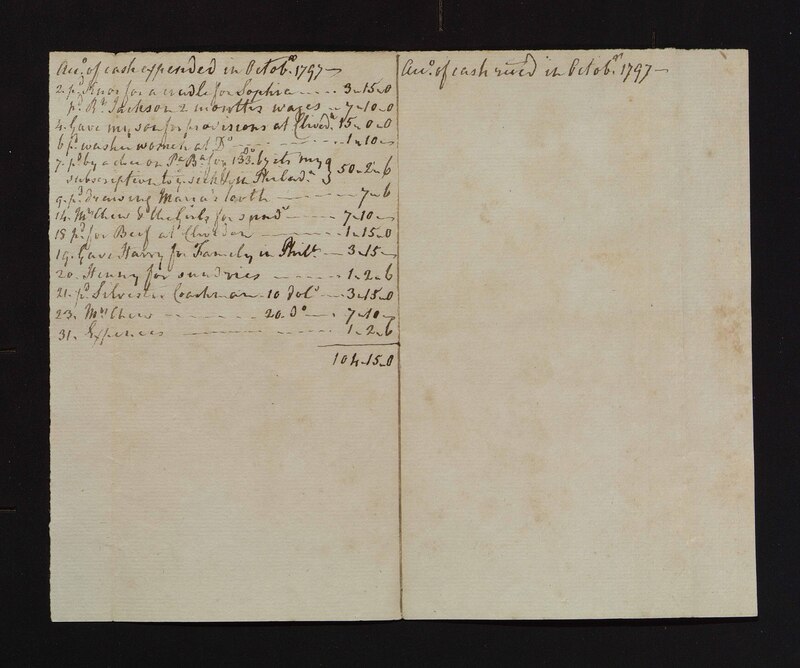 Acco. of cash expended in Octobr. 1797 —
2. pd. Knor for a cradle for Sophia - - - - 3 - 15 - 0
pd. Rt. Jackson 2 months wages - - 7 - 10 - 0
4. Gave my son for provisions at Clived.n 15 - 0 - 0
6 pd. washer woman at Do - - - - - 1 - 10 -
7. pd. by a chec on Pa. Ba. for 133. Do
subscription to ye. sick in Philada. 50 - 2 - 6
9. pd. drawing Maria's tooth - - - - 7 - 6
14. Mrs. Chew & the Girls for 7 - 10 -
18 pd. for Beef at Cliveden - - - 1 - 15 - 0
19. Gave Harry for Family in Phila. - 3 - 15 -
20. Henny for sundries - - - - - 1 - 2 - 6
21. pd. Silvester Coachman - 10 Dols. - - 3 - 15 - 0
23. Mrs. Chew - - - - 20. Do - - 7 - 10 -
31. Expences - - - - - 1 - 2 - 6
104 - 15 - 0
Acco. of cash recd. in Octobr. 1797 —